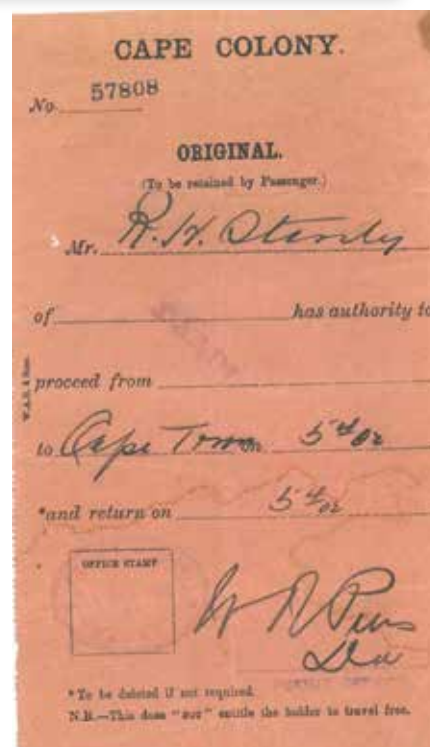 CAPE COLONY.
No. 57808
ORIGINAL.
(To be retained by Passenger.)
Mr. R. H.
of has authority to
proceed from
to Cape Town on 5
*and return on 5
OFFICE STAMP
W
* To be deleted if not required.
N.B.—This does "NOT" entitle the holder to travel free.